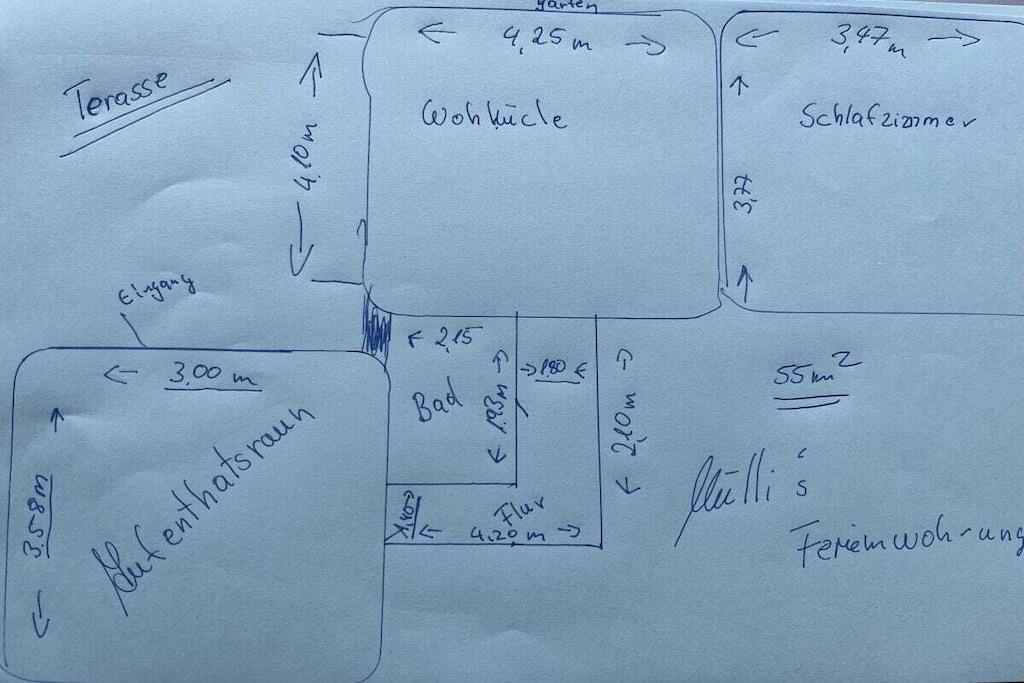 garten
4,25 m
3,47 m
Terasse
4,10 m
Wohküche
Schlafzimmer
3,77
Eingang
2,15
1,80
3,00 m
Bad
1,93 m
2,10 m
55 m²
Aufenthatsraum
3,58 m
1,40
Flur
4,20 m
Mülli's
Ferienwohnung